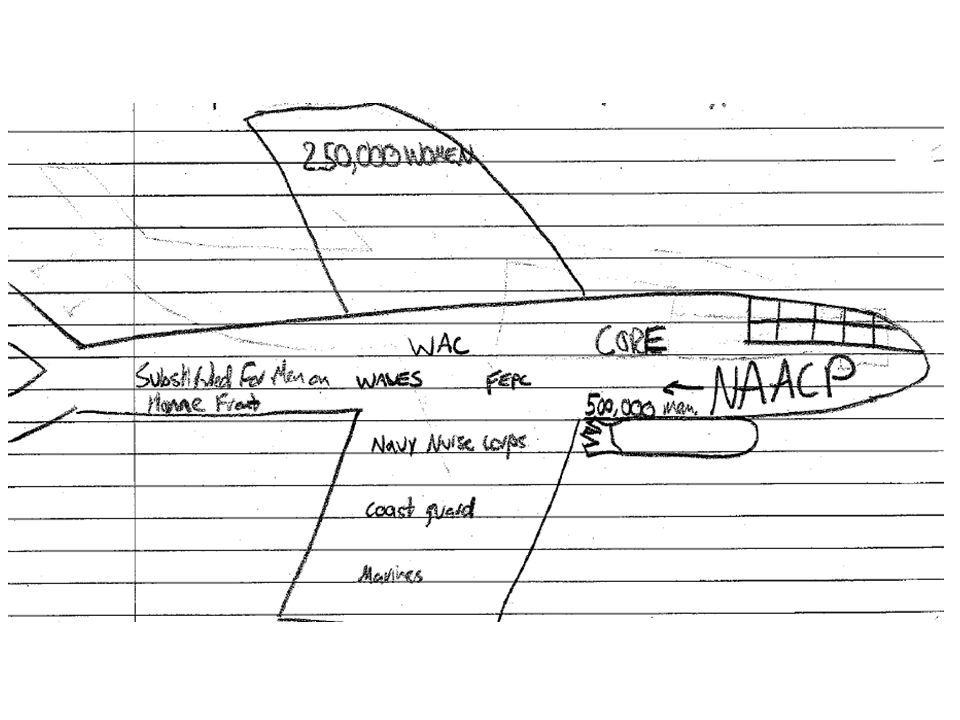 250,000 WOMEN
WAC
CORE
Substituted For Men on
Home Front
WAVES
FEPC
← NAACP
500,000 mem.
Navy Nurse Corps
Coast guard
Marines